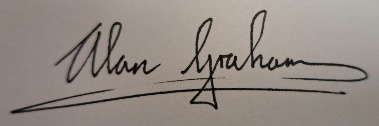 Alan Graham